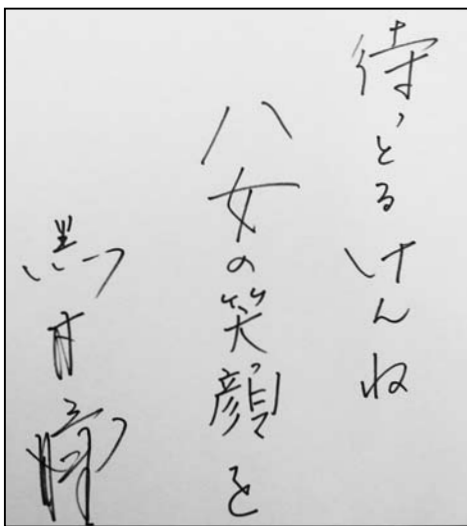 待っとるけんね
八女の笑顔を
黒木瞳